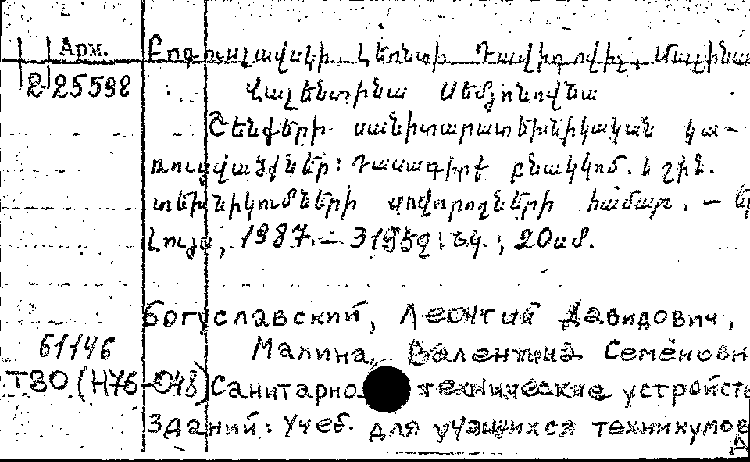 Арм. Բոգուսլավսկի, Լեոնտի Դավիդովիչ, Մալինա
2 25598 Վալենտինա Սեմյոնովնա
Շենքերի սանիտարատեխնիկական կա-
ռուցվածքներ: Դասագիրք բնակկոմ. և շին.
տեխնիկումների սովորողների համար. — Ե
Լույս, 1987. — էջ: նկ.; 20սմ.
Богуславский, Леонтий Давидович,
61146 Малина, Валентина Семёновн
Т30.(Н76-048) Санитарно технические устройств
зданий: Учеб. для учащихся техникумов